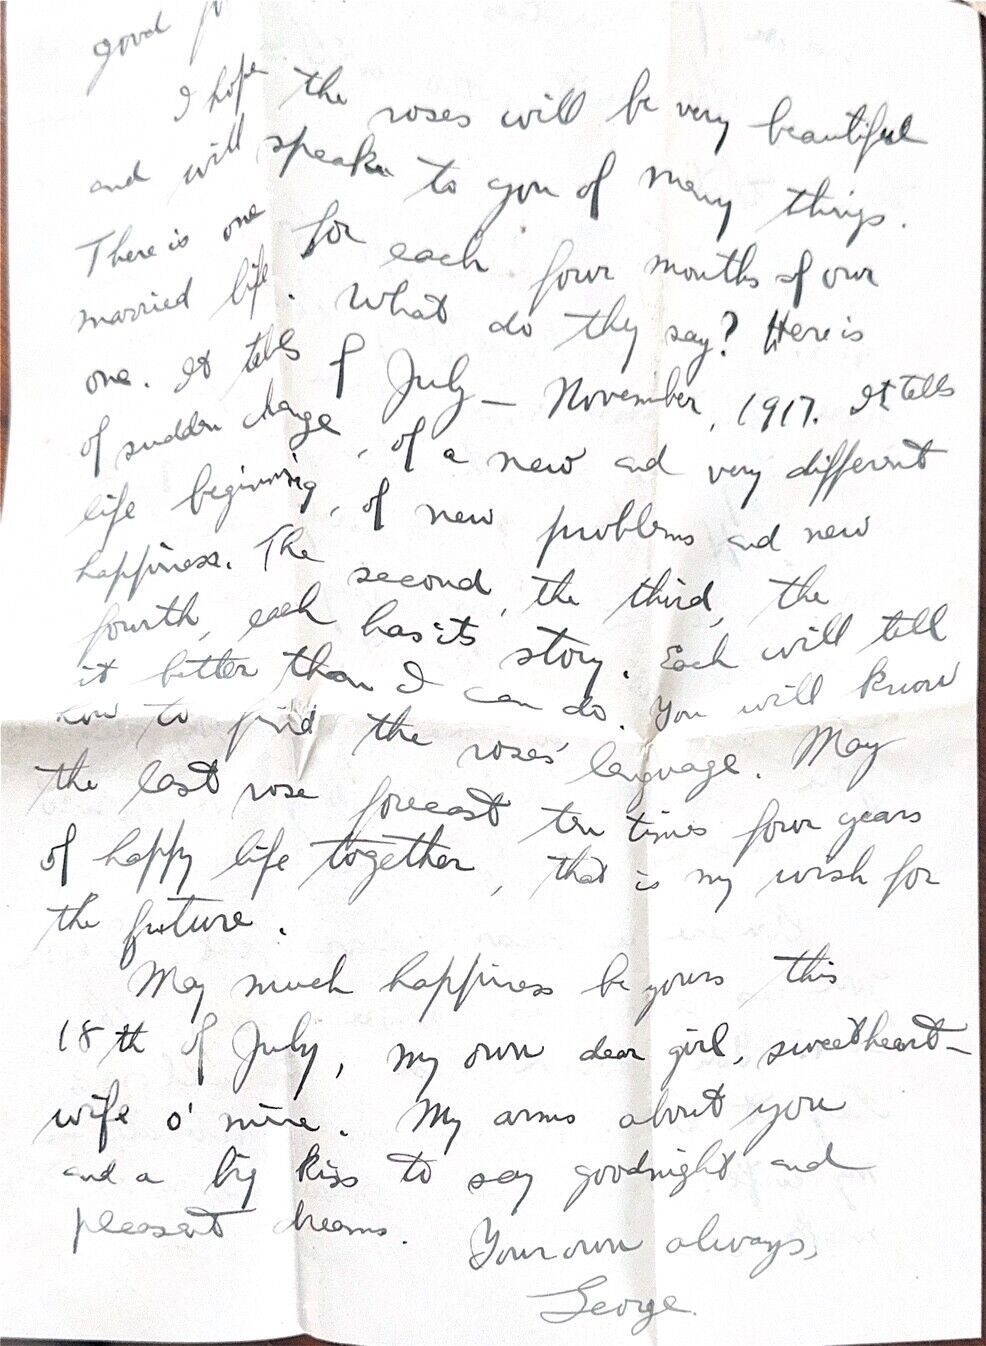 good
I hope the roses will be very beautiful
and will speak to you of many things.
There is one for each four months of our
married life. What do they say? Here is
one. It tells of July - November, 1917. It tells
of sudden change, of a new and very different
life beginning, of new problems and new
happiness. The second, the third, the
fourth, each has its story. Each will tell
it better than I can do. You will know
how to find the roses' language. May
the last rose forecast ten times four years
of happy life together, that is my wish for
the future.
May much happiness be yours this
18th of July, my own dear girl, sweetheart-
wife o' mine. My arms about you
and a big kiss to say goodnight and
pleasant dreams.
Your own always,
George.